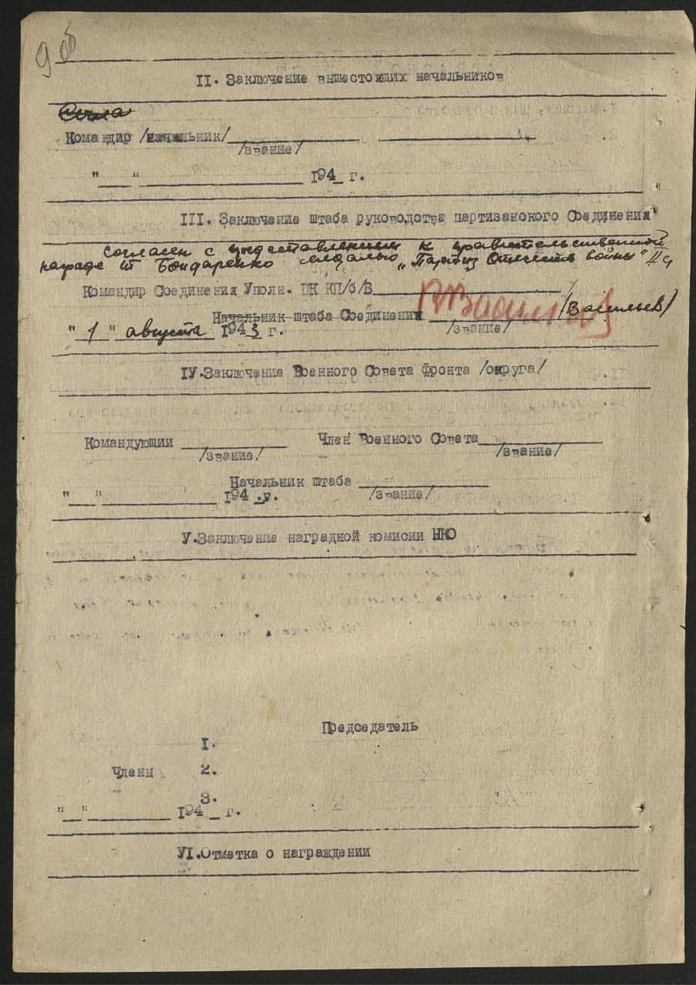 9 об
II. Заключение вышестоящих начальников
Командир /начальник/
/звание/
"__" ____ 194_ г.
III. Заключение штаба руководства партизанского Соединения
Согласен с представлением к правительственной
награде т Бондаренко медалью "Партиз Отечеств войны" II ст
Командир Соединения Уполн. ЦК КП/б/В
Начальник штаба Соединения (Васильев)
/звание/
"1" августа 1943 г.
IV. Заключение Военного Совета фронта /округа/
Командующии ____ Член Военного Совета ____
/звание/ /звание/
Начальник штаба ____
"__" ____ 194 г. /звание/
V. Заключение наградной комисии НКО
Председатель
I.
Члены 2.
3.
"__" ____ 194_ г.
VI. Отметка о награждении